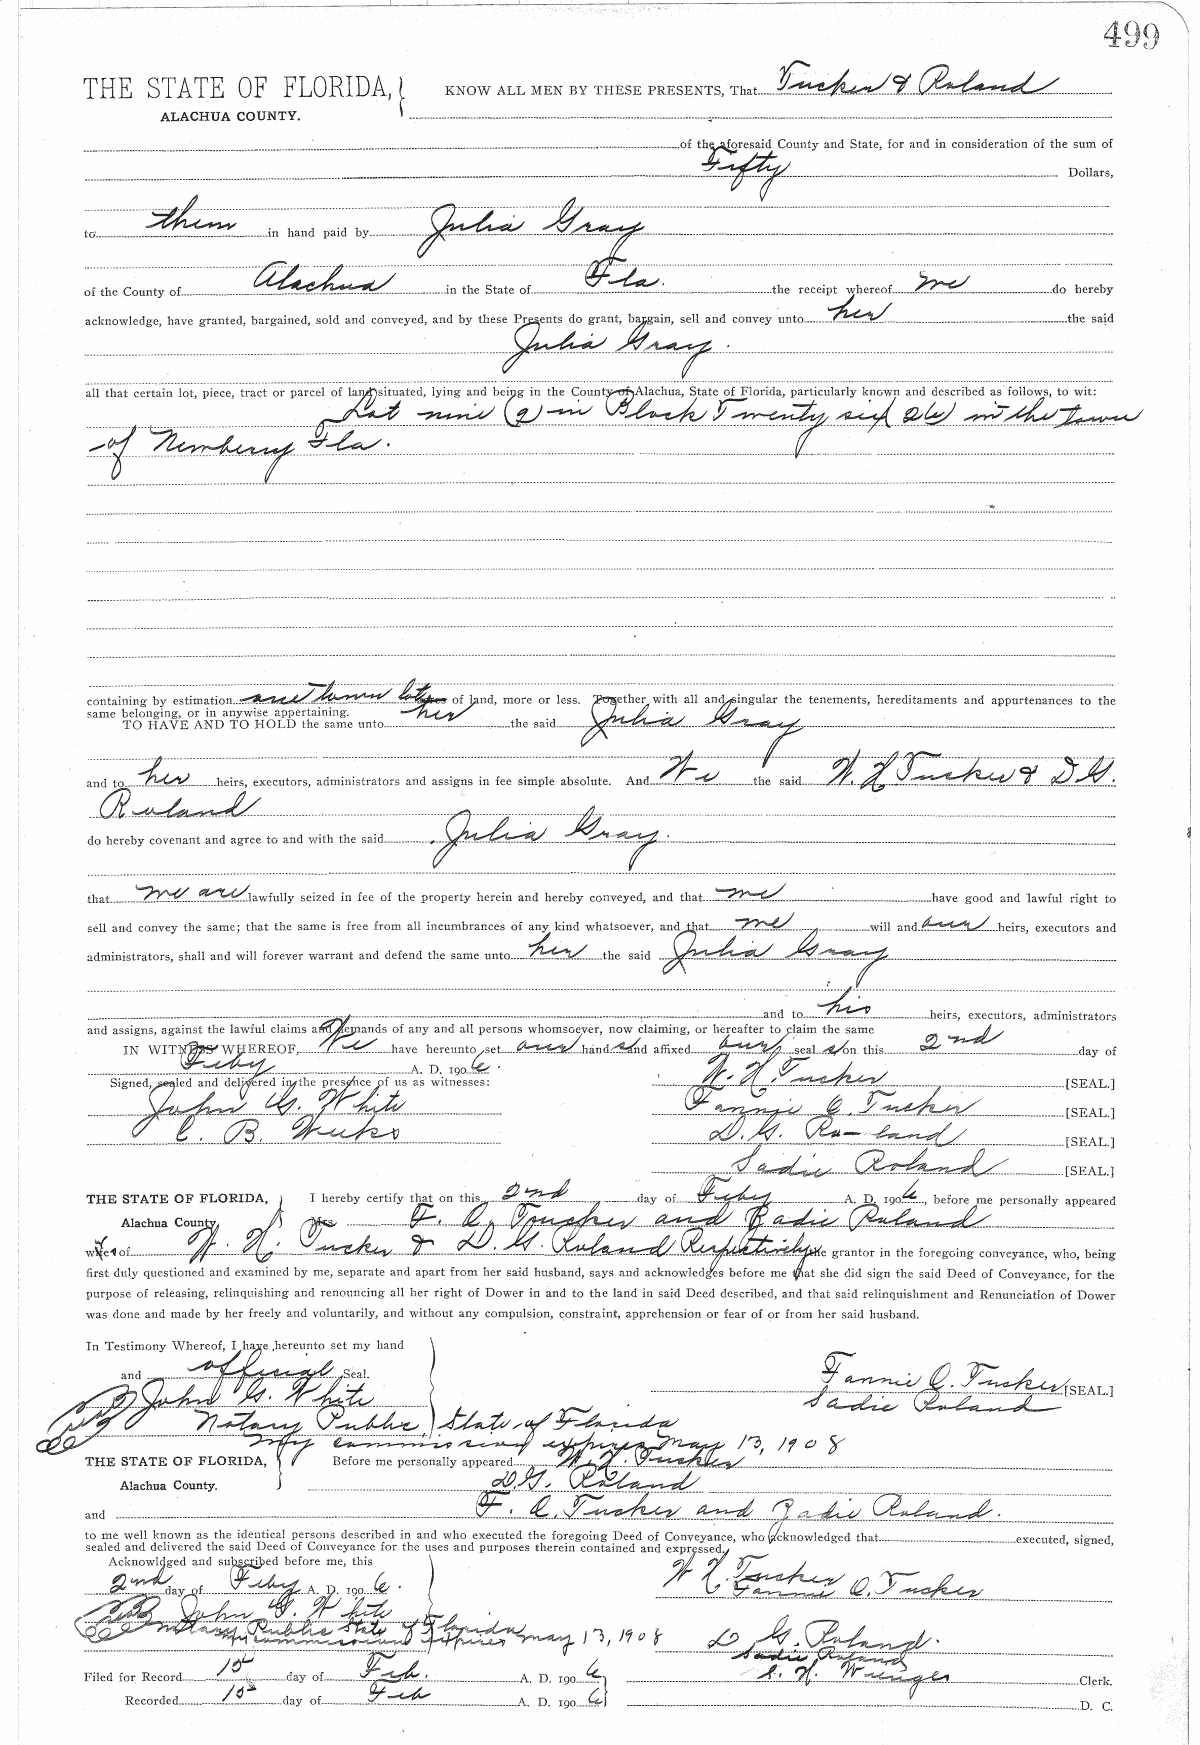 499
THE STATE OF FLORIDA, KNOW ALL MEN BY THESE PRESENTS, That Tucker & Roland
ALACHUA COUNTY.
of the aforesaid County and State, for and in consideration of the sum of
Fifty Dollars,
to them in hand paid by Julia Gray
of the County of Alachua in the State of Fla. the receipt whereof we do hereby
acknowledge, have granted, bargained, sold and conveyed, and by these Presents do grant, bargain, sell and convey unto her the said
Julia Gray.
all that certain lot, piece, tract or parcel of land situated, lying and being in the County of Alachua, State of Florida, particularly known and described as follows, to wit:
Lot nine (9) in Block Twenty six (26) in the town
of Newberry Fla.
containing by estimation one town lot of land, more or less. Together with all and singular the tenements, hereditaments and appurtenances to the
same belonging, or in anywise appertaining.
TO HAVE AND TO HOLD the same unto her the said Julia Gray
and to her heirs, executors, administrators and assigns in fee simple absolute. And We the said W. H. Tucker & D. G.
Roland
do hereby covenant and agree to and with the said Julia Gray.
that we are lawfully seized in fee of the property herein and hereby conveyed, and that we have good and lawful right to
sell and convey the same; that the same is free from all incumbrances of any kind whatsoever, and that we will and our heirs, executors and
administrators, shall and will forever warrant and defend the same unto her the said Julia Gray
and to his heirs, executors, administrators
and assigns, against the lawful claims and demands of any and all persons whomsoever, now claiming, or hereafter to claim the same
IN WITNESS WHEREOF, We have hereunto set our hands and affixed our seals on this 2nd day of
Feby A. D. 1906.
Signed, sealed and delivered in the presence of us as witnesses: W. H. Tucker [SEAL.]
John G. White Fannie C. Tucker [SEAL.]
C. B. Weeks D. G. Ro-land [SEAL.]
Sadie Roland [SEAL.]
THE STATE OF FLORIDA, I hereby certify that on this 2nd day of Feby A. D. 1906, before me personally appeared
Alachua County. F. C. Toucker and Zadie Roland
wives of W. H. Tucker & D. G. Roland Respectively the grantor in the foregoing conveyance, who, being
first duly questioned and examined by me, separate and apart from her said husband, says and acknowledges before me that she did sign the said Deed of Conveyance, for the
purpose of releasing, relinquishing and renouncing all her right of Dower in and to the land in said Deed described, and that said relinquishment and Renunciation of Dower
was done and made by her freely and voluntarily, and without any compulsion, constraint, apprehension or fear of or from her said husband.
In Testimony Whereof, I have hereunto set my hand
and official Seal. Fannie C. Tucker [SEAL.]
John G. White Sadie Roland
Notary Public, State of Florida
My commission expires May 13, 1908
THE STATE OF FLORIDA, Before me personally appeared W. H. Tucker
Alachua County. D. G. Roland
and F. C. Tucker and Zadie Roland.
to me well known as the identical persons described in and who executed the foregoing Deed of Conveyance, who acknowledged that executed, signed,
sealed and delivered the said Deed of Conveyance for the uses and purposes therein contained and expressed.
Acknowldged and subscribed before me, this W. H. Tucker
2nd day of Feby A. D. 1906. Fannie C. Tucker
John G. White
Notary Public State of Florida D. G. Roland.
My commission expires May 13, 1908 Sadie Roland
Filed for Record 15 day of Feb. A. D. 1906 S. H. Wienges Clerk.
Recorded 15 day of Feb A. D. 1906 D. C.